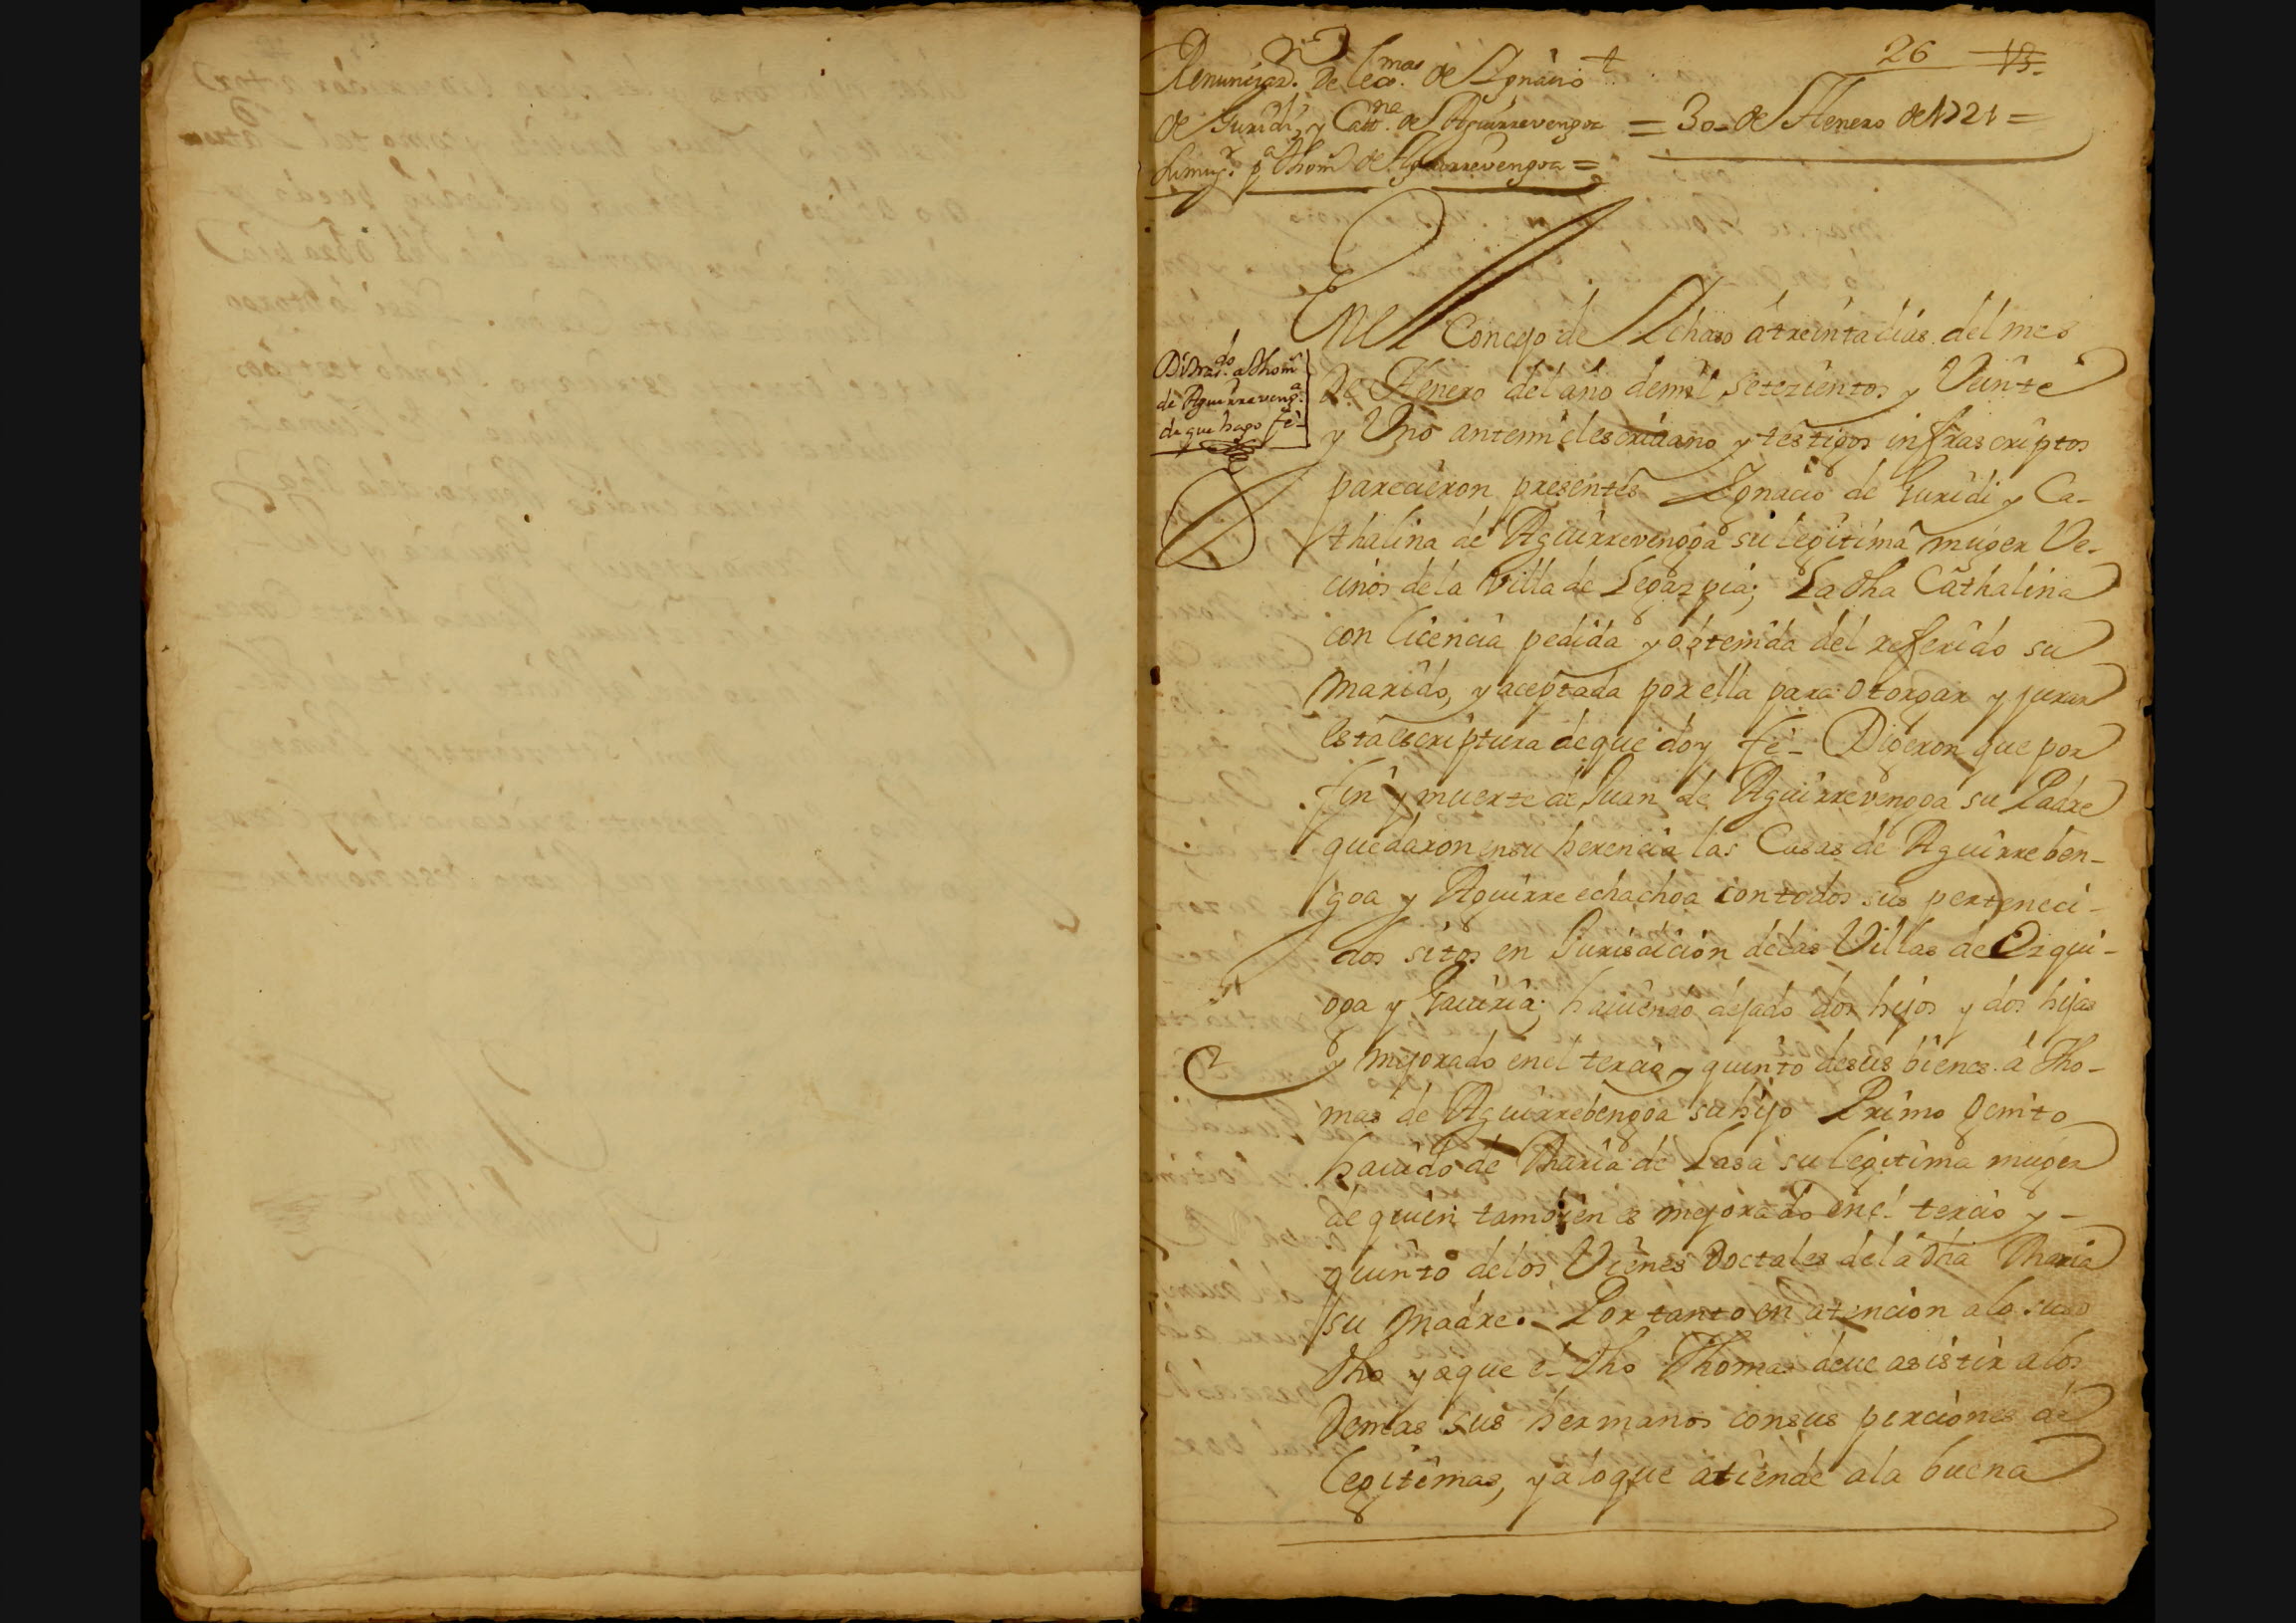 26 15
Renunciaz.ⁿ de leg.ᵐᵃˢ de Ignacio
de Guridi, y Cath.ⁿᵃ de Aguirrevengoa
su mug.ʳ p.ᵃ Thom.ˢ de Aguirrevengoa =
= 30 de Henero de 1721 =
En el Concejo de Ichaso á treinta dias del mes
De Henero del año de mil setezientos y Veinte
y Uno antemi el escriuano y testigos infrascriptos
parecieron presentes Ignacio de Guridi y Ca-
thalina de Aguirrevengoa su legitima muger Ve-
cinos de la Villa de Legazpia; La dha Cathalina
con licencia pedida y obtenida del referido su
marido, y aceptada por ella para otorgar y jurar
esta escriptura de que doy fe - Digeron que por
fin y muerte de Juan de Aguirrevengoa su Padre
quedaron en su herencia las Casas de Aguirreben-
goa y Aguirre echachoa con todos sus perteneci-
dos sitos en Jurisdicion de las Villas de Ezqui-
oga y Gauiria; hauiendo dejado dos hijos y dos hijas
y mejorado en el tercio y quinto de sus bienes á Tho-
mas de Aguirrebengoa su hijo Primo genito
hauido de Maria de Lasa su legitima muger
de quien tambien es mejorado en el tercio y -
quinto de los Vienes Doctales de la dha Maria
su Madre. Por tanto en atencion a lo suso
dho y a que el dho Thomas deue asistir a los
Demas sus hermanos con sus porciones de
legitimas, y a lo que atiende a la buena
a Thom.ˢ
de Aguirreveng.ᵃ
de que hago fe -